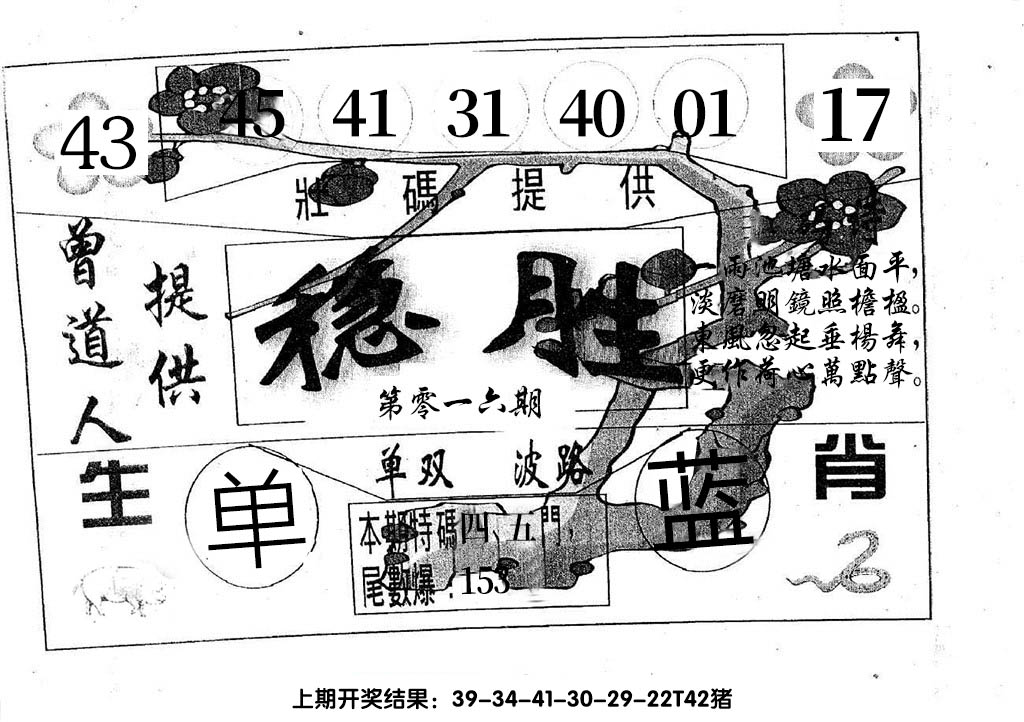 43 45 41 31 40 01 17
壯碼提供
特
曾道人
提供
稳胜
第零一六期
雨池塘水面平，
淡磨明鏡照檐楹。
東風忽起垂楊舞，
更作荷心萬點聲。
单双 波路
生 单 蓝 肖
本期特碼四、五門，
尾數爆：153
上期开奖结果：39-34-41-30-29-22T42猪